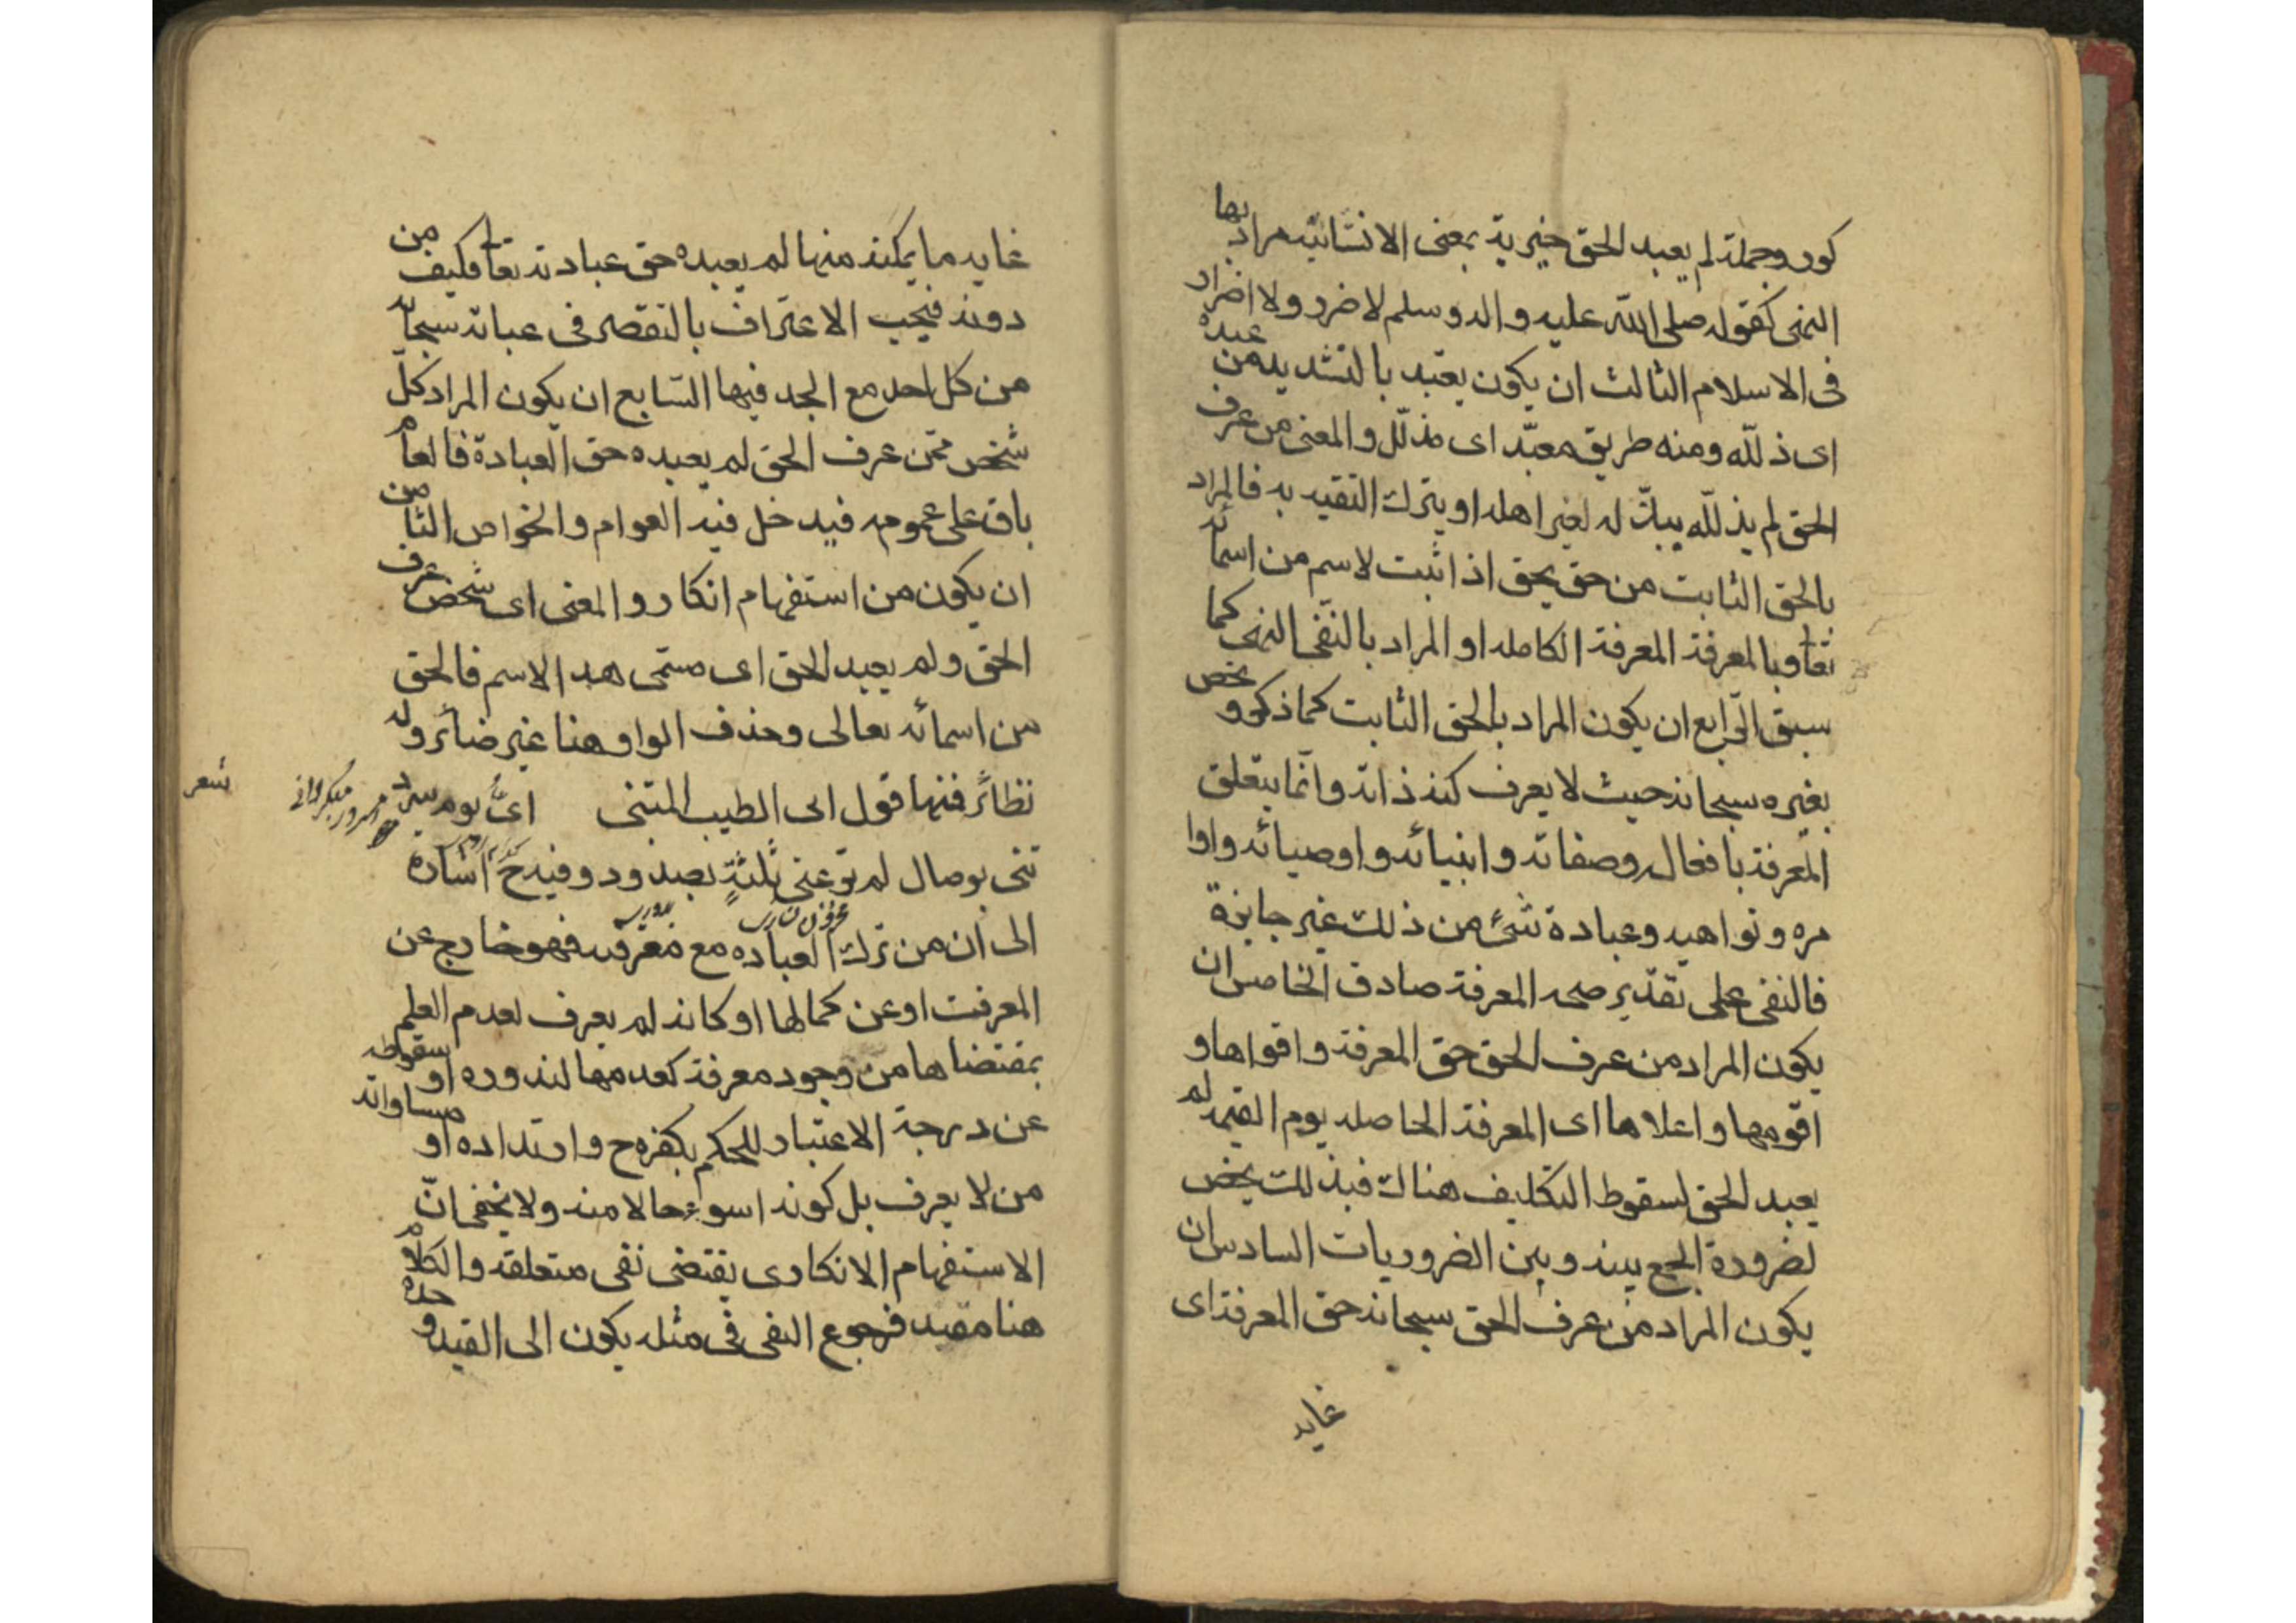 كور وجملة لم يعبد الحق خبرية بمعنى الانشائيه مراد بها
النهى كقوله صلى الله عليه واله وسلم لا ضرر ولا اضرار
فى الاسلام الثالث ان يكون يعبّد بالتشديد من عبده
اى ذلّله ومنه طريق معبّد اى مذلّل والمعنى من عرف
الحق لم يذلّله ببذله لغير اهله او بترك التقيد به فالمراد
بالحق الثابت من حق يحق اذا ثبت لاسم من اسمائه
تعا وبالمعرفة المعرفة الكامله او المراد بالنفى النهى كما
سبق الرّابع ان يكون المراد بالحق الثابت كما ذكر و يخص
بغيره سبحانه حيث لا يعرف كنه ذاته وانّما يتعلق
المعرفة بافعاله وصفاته وانبيائه واوصيائه واوا
مره ونواهيه وعبادة شئ من ذلك غير جايزة
فالنفى على تقدير صحه المعرفة صادق الخامس ان
يكون المراد من عرف الحق حق المعرفة واقواها و
اقومها واعلاها اى المعرفة الحاصله يوم القيمه لم
يعبد الحق لسقوط التكليف هناك فبذلك يخص
لضرورة الجمع بينه وبين الضروريات السادس ان
يكون المراد من عرف الحق سبحانه حق المعرفة اى
غايه
غايه ما يمكنه منها لم يعبده حق عبادته تعا فكيف من
دونه فيجب الاعتراف بالتقصر فى عباته سبحانه
من كل احد مع الجد فيها السّابع ان يكون المراد كلّ
شخص ممّن عرف الحق لم يعبده حق العبادة فالعام
باق على عمومه فيدخل فيه العوام والخواص الثامن
ان يكون من استفهام انكار والمعنى اى شخص عرف
الحق ولم يعبد الحق اى مسمّى هذا الاسم فالحق
من اسمائه تعالى وحذف الواو هنا غير ضائر وله
نظائر فمنها قول ابى الطيب المتنبى اىّ يوم سرر
شعر
تنى بوصال لم ترعنى ثلثةٍ بصدود وفيه ح اشاره
الى ان من ترك العباده مع معرفته فهو خارج عن
المعرفت او عن كمالها او كانه لم يعرف لعدم العلم
بمقتضاها من وجود معرفة كعدمها لندوره او سقوطه
عن درجة الاعتبار للحكم بكفره ح وارتداده او مساواته
من لا يعرف بل كونه اسوء حالا منه ولا يخفى انّ
الاستفهام الانكارى يقتضى نفى متعلقه والكلام
هنا مقيد فرجوع النفى فى مثله يكون الى القيد و حده